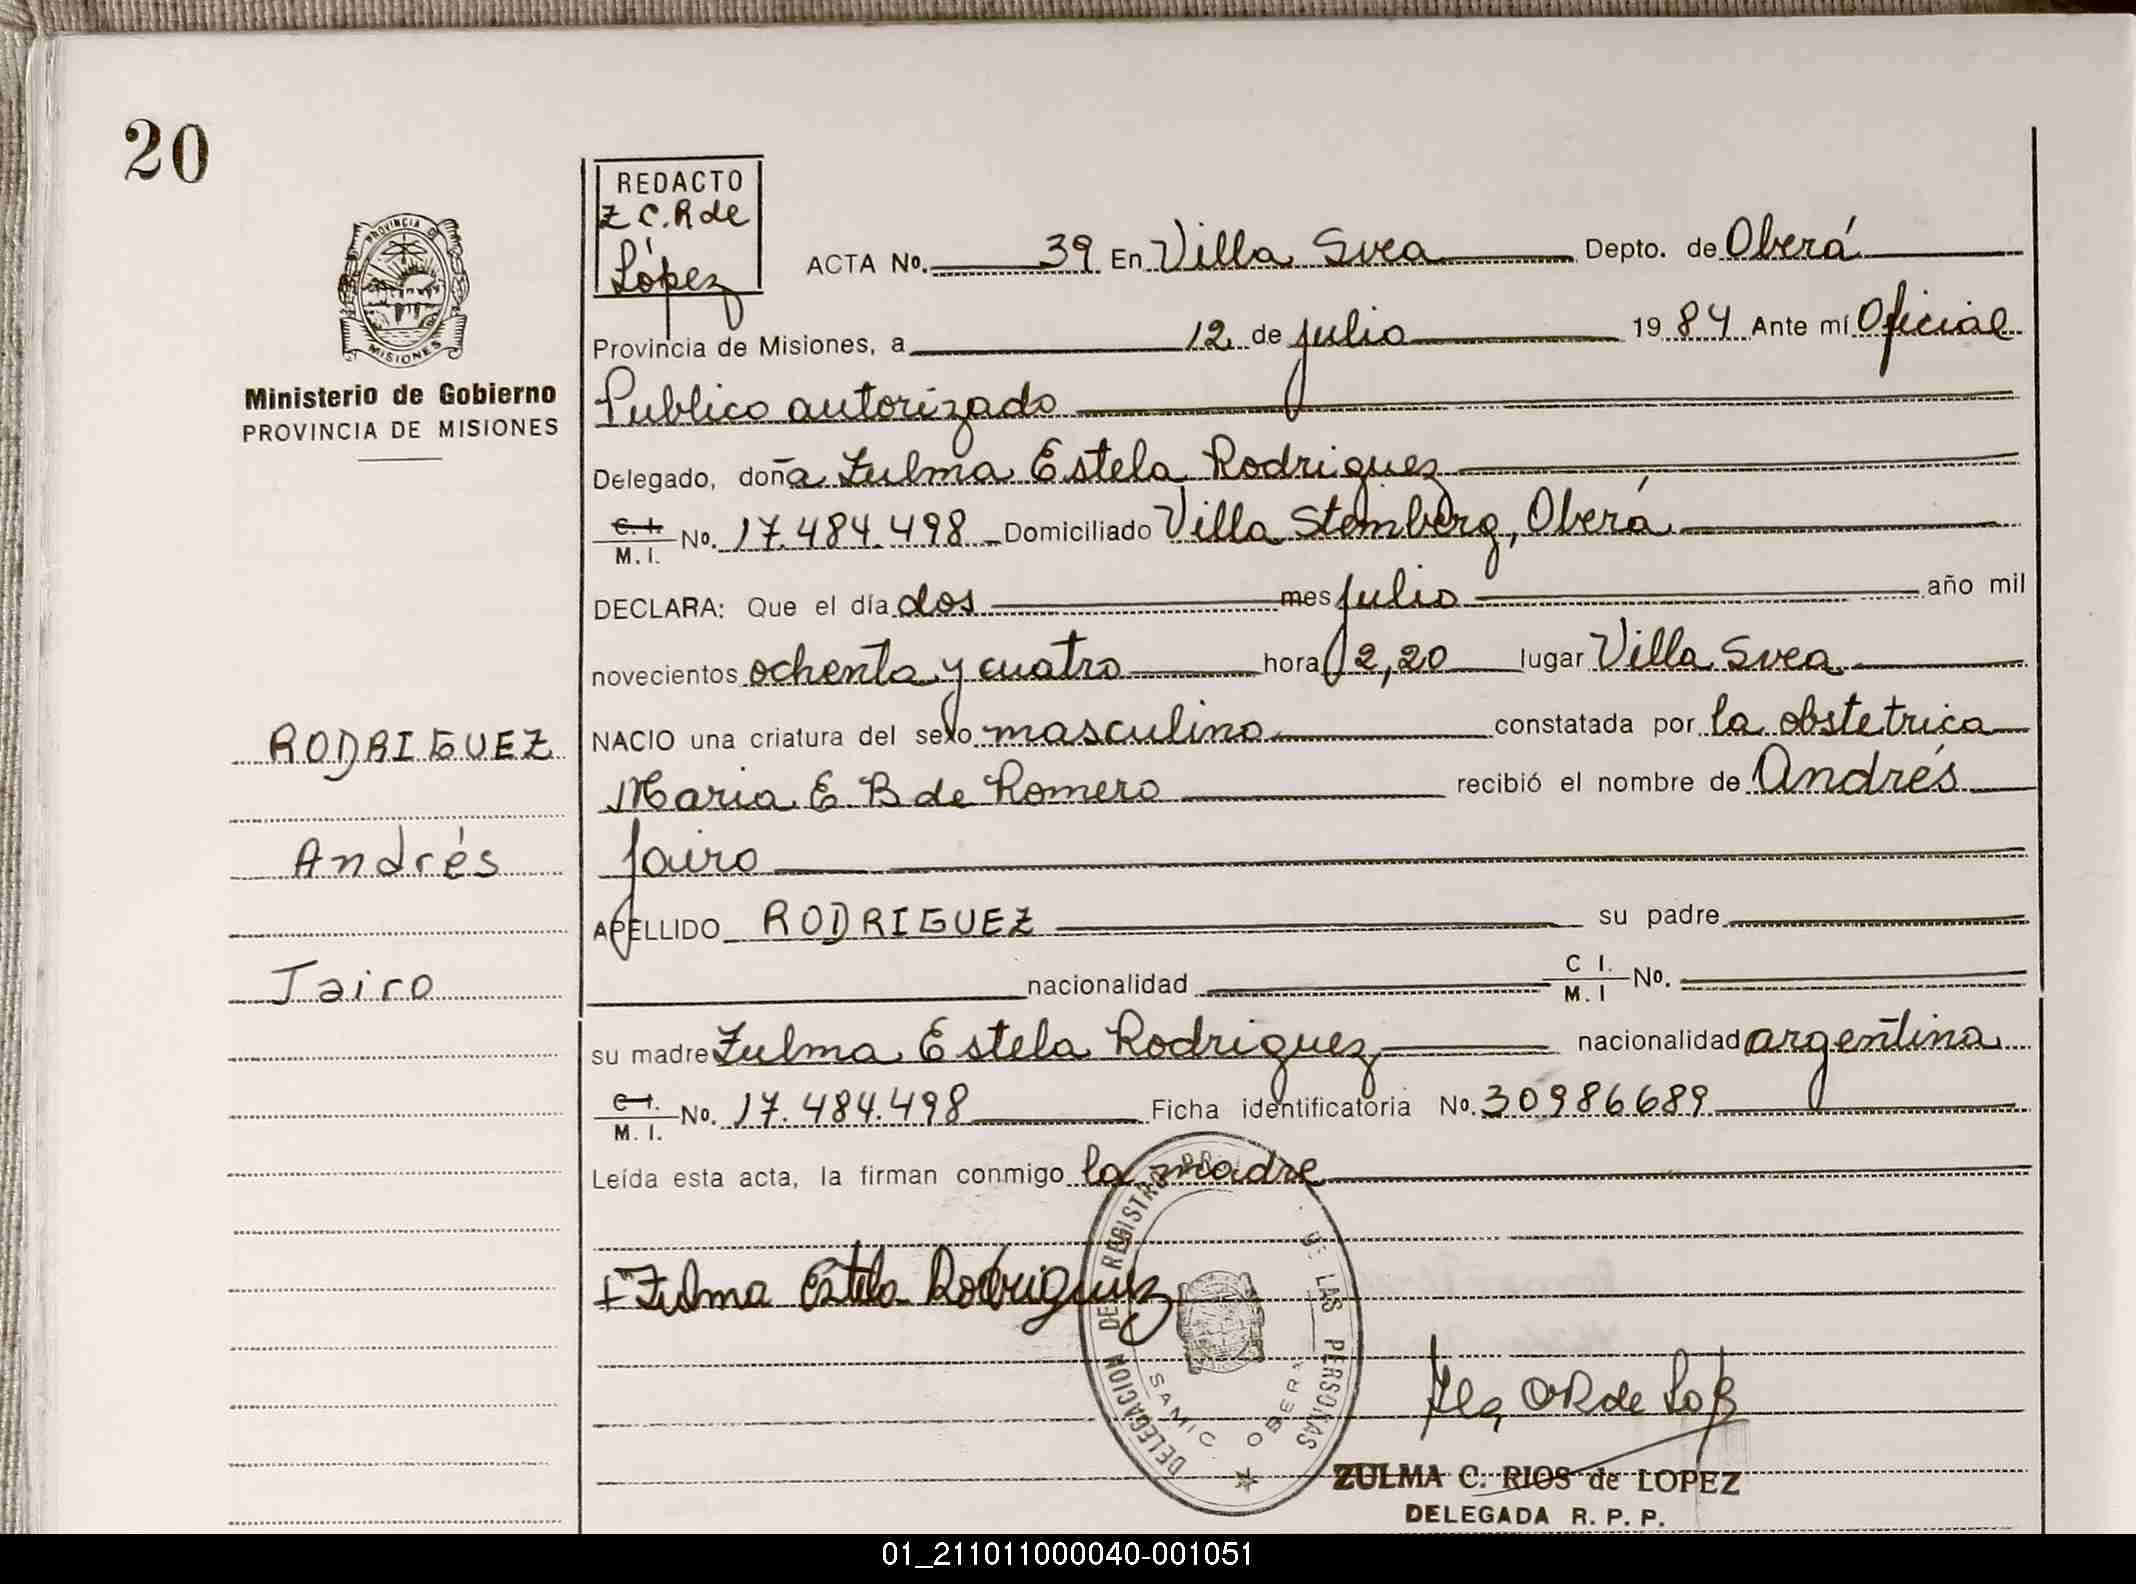 20
REDACTO
Z C. R de
López
PROVINCIA DE
MISIONES
Ministerio de Gobierno
PROVINCIA DE MISIONES
ACTA No. 39 En Villa Svea Depto. de Oberá
Provincia de Misiones, a 12 de julio 1984 Ante mí Oficial
Publico autorizado
Delegado, doña Zulma Estela Rodriguez
C. I. M. I. No. 17.484.498 Domiciliado Villa Stemberg, Oberá
DECLARA: Que el día dos mes julio año mil
novecientos ochenta y cuatro hora 2,20 lugar Villa Svea
NACIO una criatura del sexo masculino constatada por la obstetrica
Maria E. B de Romero recibió el nombre de Andrés
Jairo
APELLIDO RODRIGUEZ su padre
nacionalidad C I. M. I No.
su madre Zulma Estela Rodriguez nacionalidad argentina
C I. M. I. No. 17.484.498 Ficha identificatoria No. 30986689
Leída esta acta, la firman conmigo la madre
RODRIGUEZ
Andrés
Jairo
Zulma Estela Rodriguez
DELEGACION DE REGISTRO PR DE LAS PERSONAS
SAMIC OBERA
ZULMA C. RIOS de LOPEZ
DELEGADA R. P. P.
01_211011000040-001051